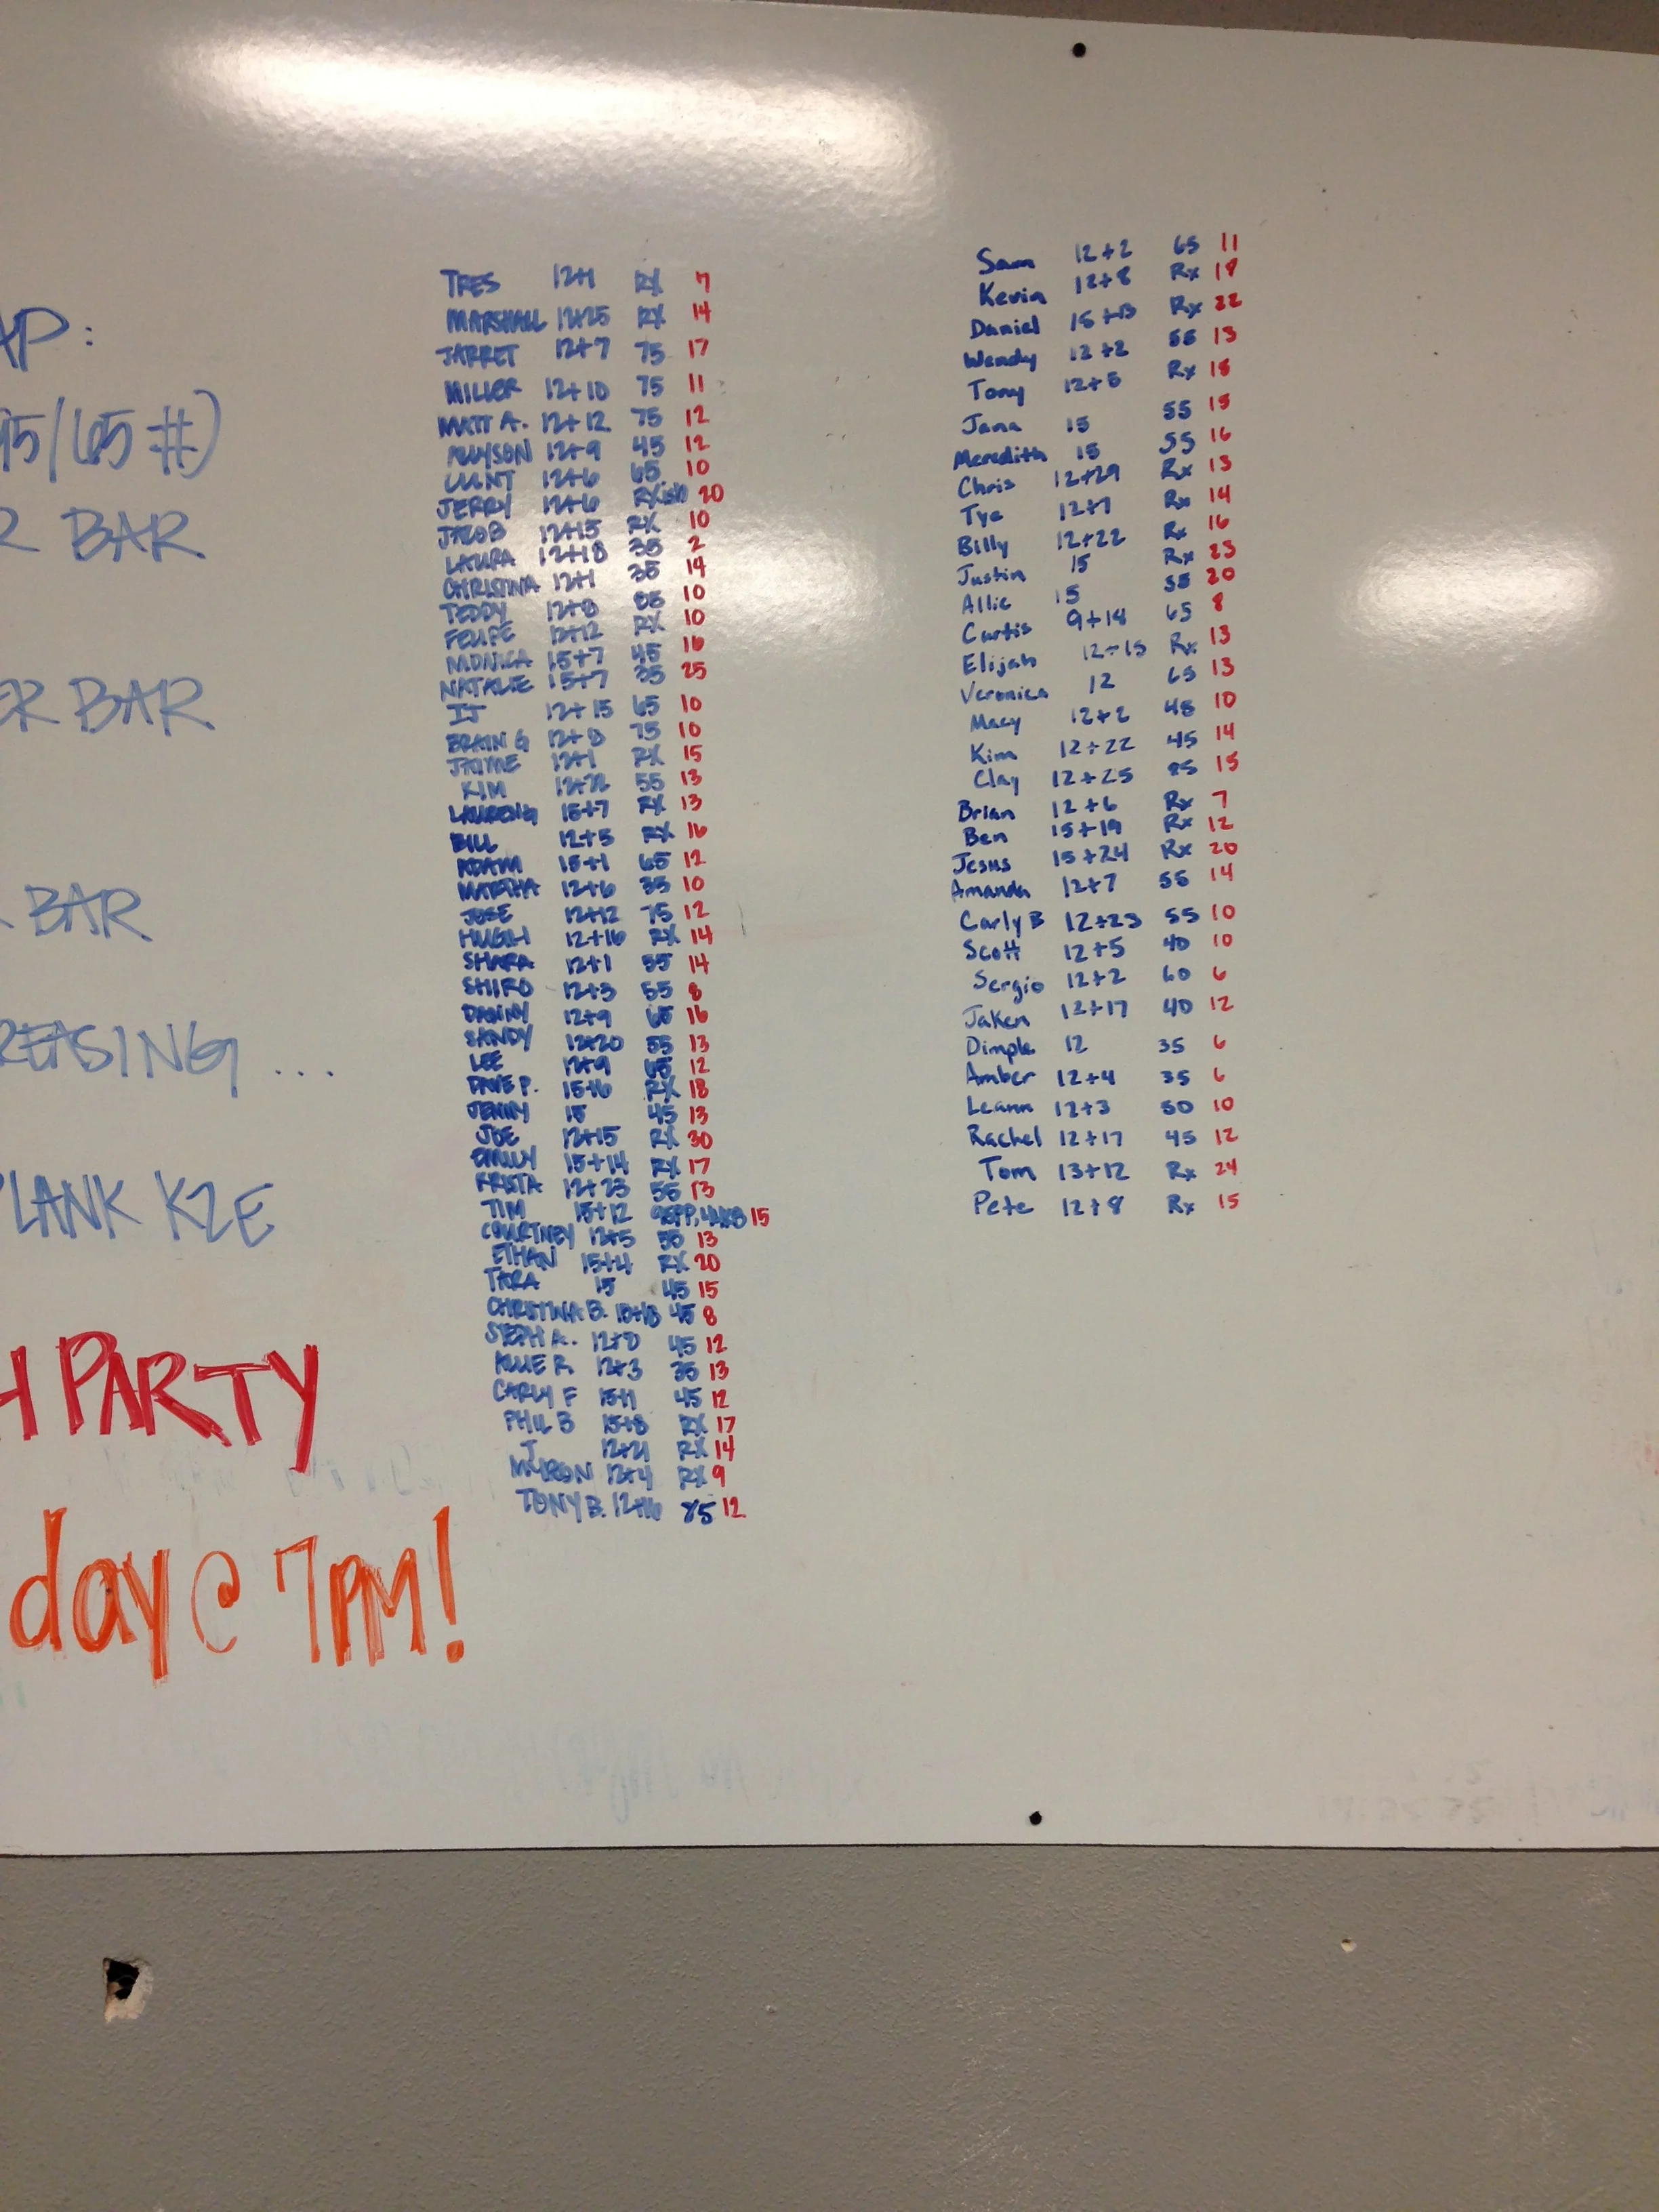 AP:
95/65#)
R BAR
ER BAR
BAR
REASING...
PLANK K2E
H PARTY
day @ 7PM!
TRES 12+1 RX 7
MARSHALL 12+25 RX 14
JARRET 12+7 75 17
MILLER 12+10 75 11
MATT A. 12+12 75 12
ALLYSON 12+9 45 12
12+6 65 10
JERRY 12+6 RXish 20
JACOB 12+15 RX 10
LAURA 12+18 35 2
CHRISTINA 12+1 35 14
TEDDY 12+8 85 10
FELIPE 12+12 RX 10
MONICA 15+7 45 16
NATALIE 15+7 35 25
12+15 65 10
BRAIN G 12+8 75 10
JAYME 12+1 RX 15
KIM 12+22 55 13
LAUREN G 15+7 RX 13
BILL 12+5 RX 16
ADAM 15+1 65 12
MARTHA 12+6 35 10
JOSE 12+12 75 12
HUGH 12+16 RX 14
SHARA 12+1 55 14
SHIRO 12+3 55 8
DANNY 12+9 65 16
SANDY 12+20 55 13
LEE 12+9 12
DAVE P. 15+6 RX 18
JENNY 15 45 13
JOE 12+15 RX 30
EMILY 15+14 RX 17
12+23 55 13
TIM 15+12 15
COURTNEY 12+5 55 13
ETHAN 15+4 RX 20
TARA 15 45 15
CHRISTINA B. 45 8
STEPH A. 12+8 45 12
ALLIE R 12+3 35 13
CARLY F 15+1 45 12
PHIL B 15+8 RX 17
J 12+21 RX 14
MYRON 12+4 RX 9
TONY B. 12+16 85 12
Sam 12+2 65 11
Kevin 12+8 Rx 19
Daniel 15+13 Rx 22
Wendy 12+2 55 13
Tony 12+5 Rx 15
Jana 15 55 15
Meredith 15 55 16
Chris 12+29 Rx 13
Tye 12+7 Rx 14
Billy 12+22 Rx 16
Justin 15 Rx 23
Allie 15 55 20
Curtis 9+14 65 8
Elijah 12+15 Rx 13
Veronica 12 65 13
Macy 12+2 45 10
Kim 12+22 45 14
Clay 12+25 85 15
Brian 12+6 Rx 7
Ben 15+19 Rx 12
Jesus 15+24 Rx 20
Amanda 12+7 55 14
Carly B 12+23 55 10
Scott 12+5 40 10
Sergio 12+2 60 6
Jaken 12+17 40 12
Dimple 12 35 6
Amber 12+4 35 6
Leann 12+3 50 10
Rachel 12+17 45 12
Tom 13+12 Rx 24
Pete 12+8 Rx 15